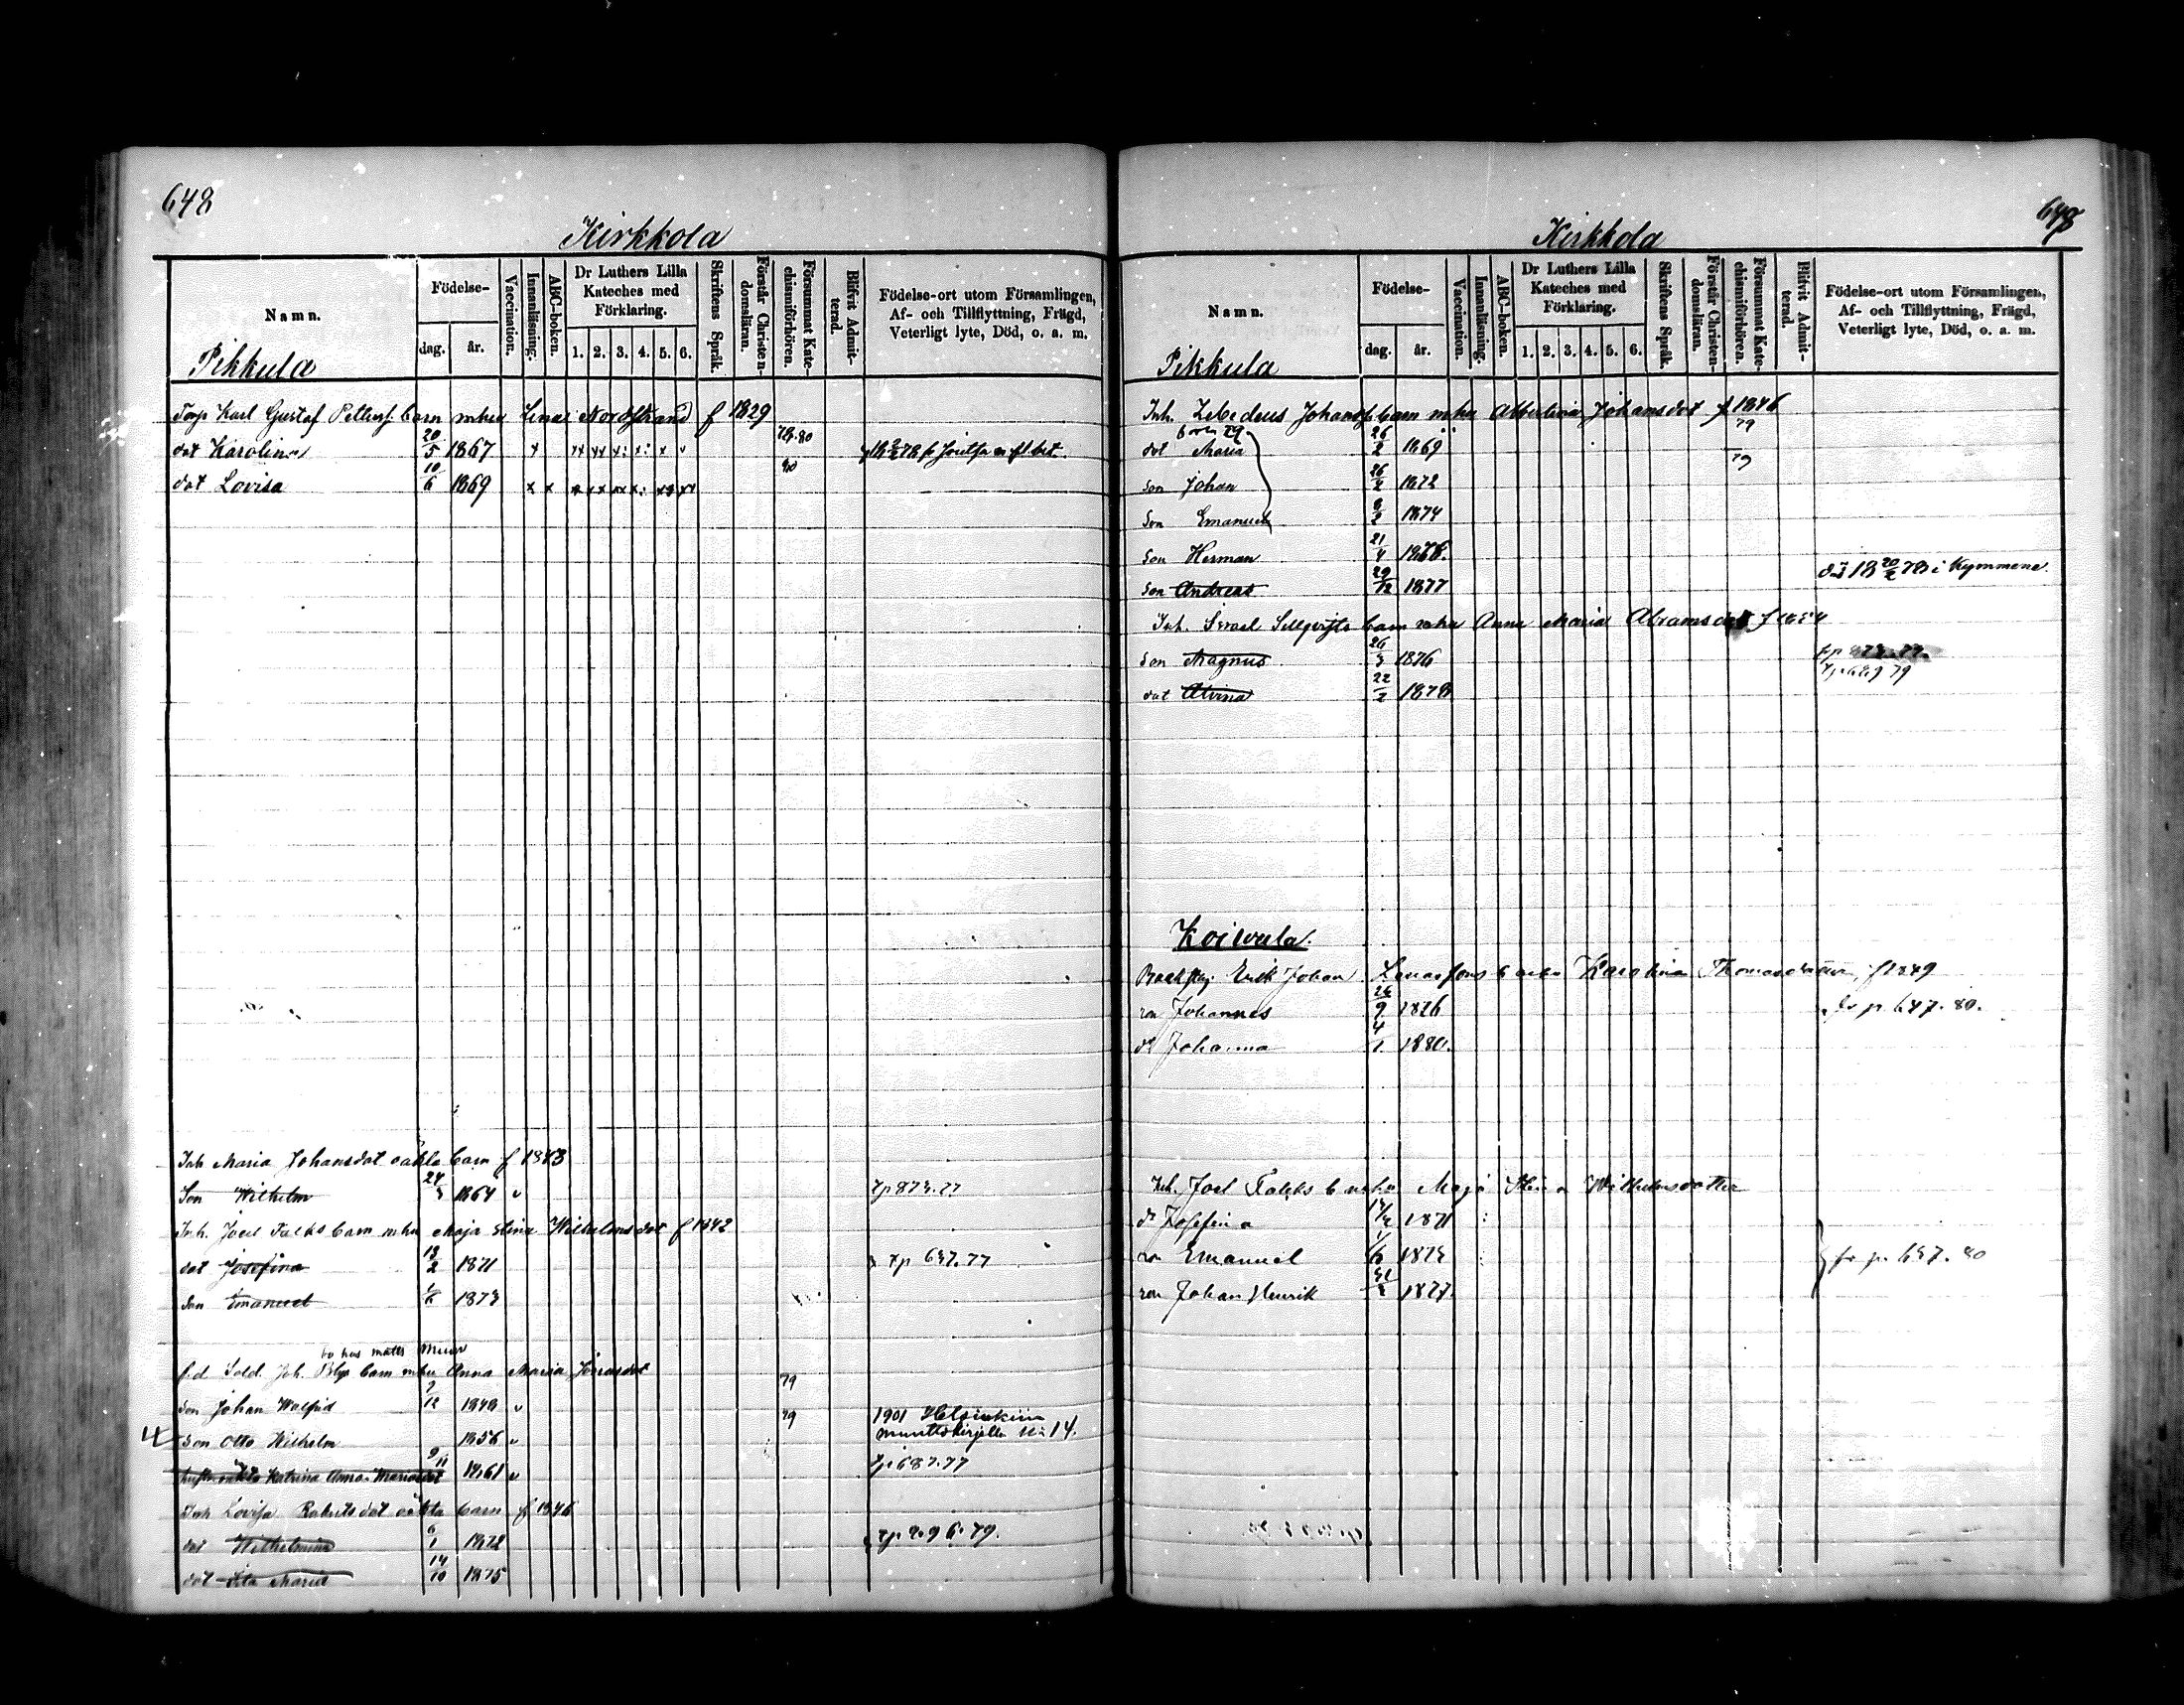 648
Kirkkola
Namn.
Födelse-
dag.
år.
Vaccination.
Innanläsning.
ABC-boken.
Dr Luthers Lilla Kateches med Förklaring.
1. 2. 3. 4. 5. 6.
Skriftens Språk.
Förstår Christendomsläran.
Försummat Katechismiförhören.
Blifvit Admitterad.
Födelse-ort utom Församlingen, Af- och Tillflyttning, Frägd, Veterligt lyte, Död, o. a. m.
Pikkula
Torp Karl Gustaf Petterss. barn mhu Lena Nordstrand f 1829
dot Karolina 20/5 1867 78.80
dot Lovisa 10/6 1869 80
Inh Maria Johansdot oäkta barn f 1843
Son Wilhelm 24/3 1864 v tp 873.77
Inh. Joel Falks barn mhu Maja Stina Wilhelmsdot f 1842
dot Josefina 13/2 1871 tp 647.77
Son Emanuel 1/6 1873
bo hos matts
f.d Sold. Joh. Blys barn mhu Anna Maria Jonasdot 79
Son Johan Walfrid 7/12 1848 v 79
Son Otto Wilhelm 1856 v 1901 Helsinkiin muuttokirjalla No 14.
Katrina Anna Mariadot 9/11 1861 v tp 687.77
Inh Lovisa Robertsdot oäkta barn f 1846
dot Wilhelmina 6/1 1872 tp 296.79.
dot Ida Maria 14/10 1875
648
Kirkkola
Namn.
Födelse-
dag.
år.
Vaccination.
Innanläsning.
ABC-boken.
Dr Luthers Lilla Kateches med Förklaring.
1. 2. 3. 4. 5. 6.
Skriftens Språk.
Förstår Christendomsläran.
Försummat Katechismiförhören.
Blifvit Admitterad.
Födelse-ort utom Församlingen, Af- och Tillflyttning, Frägd, Veterligt lyte, Död, o. a. m.
Pikkula
Inh. Zebedeus Johanss. barn mhu Albertina Johansdot f 1846
dot Maria 26/2 1869 79
son Johan 26/2 1872 79
Son Emanuel 8/2 1874
Son Herman 21/4 1876.
Son Andreas 29/12 1877 död 18 20/2 78 i Kymmene.
Inh. Israel Sellqvists barn mhu Anna Maria Abramsdot f 1854
Son Magnus 26/3 1876 tp 873.77.
dot Alvina 22/2 1878 tp 689 79
Koivula.
Erik Johan barn Karolina Thomasdotter, f 1849
son Johannes 26/9 1876 fr p. 647. 80.
dr Johanna 4/1 1880.
Inh. Joel Falks b mhu Maja Stina Wilhelmsdotter
dr Josefina 1871
son Emanuel 1/6 1873 fr p. 647. 80
son Johan Henrik 1877.